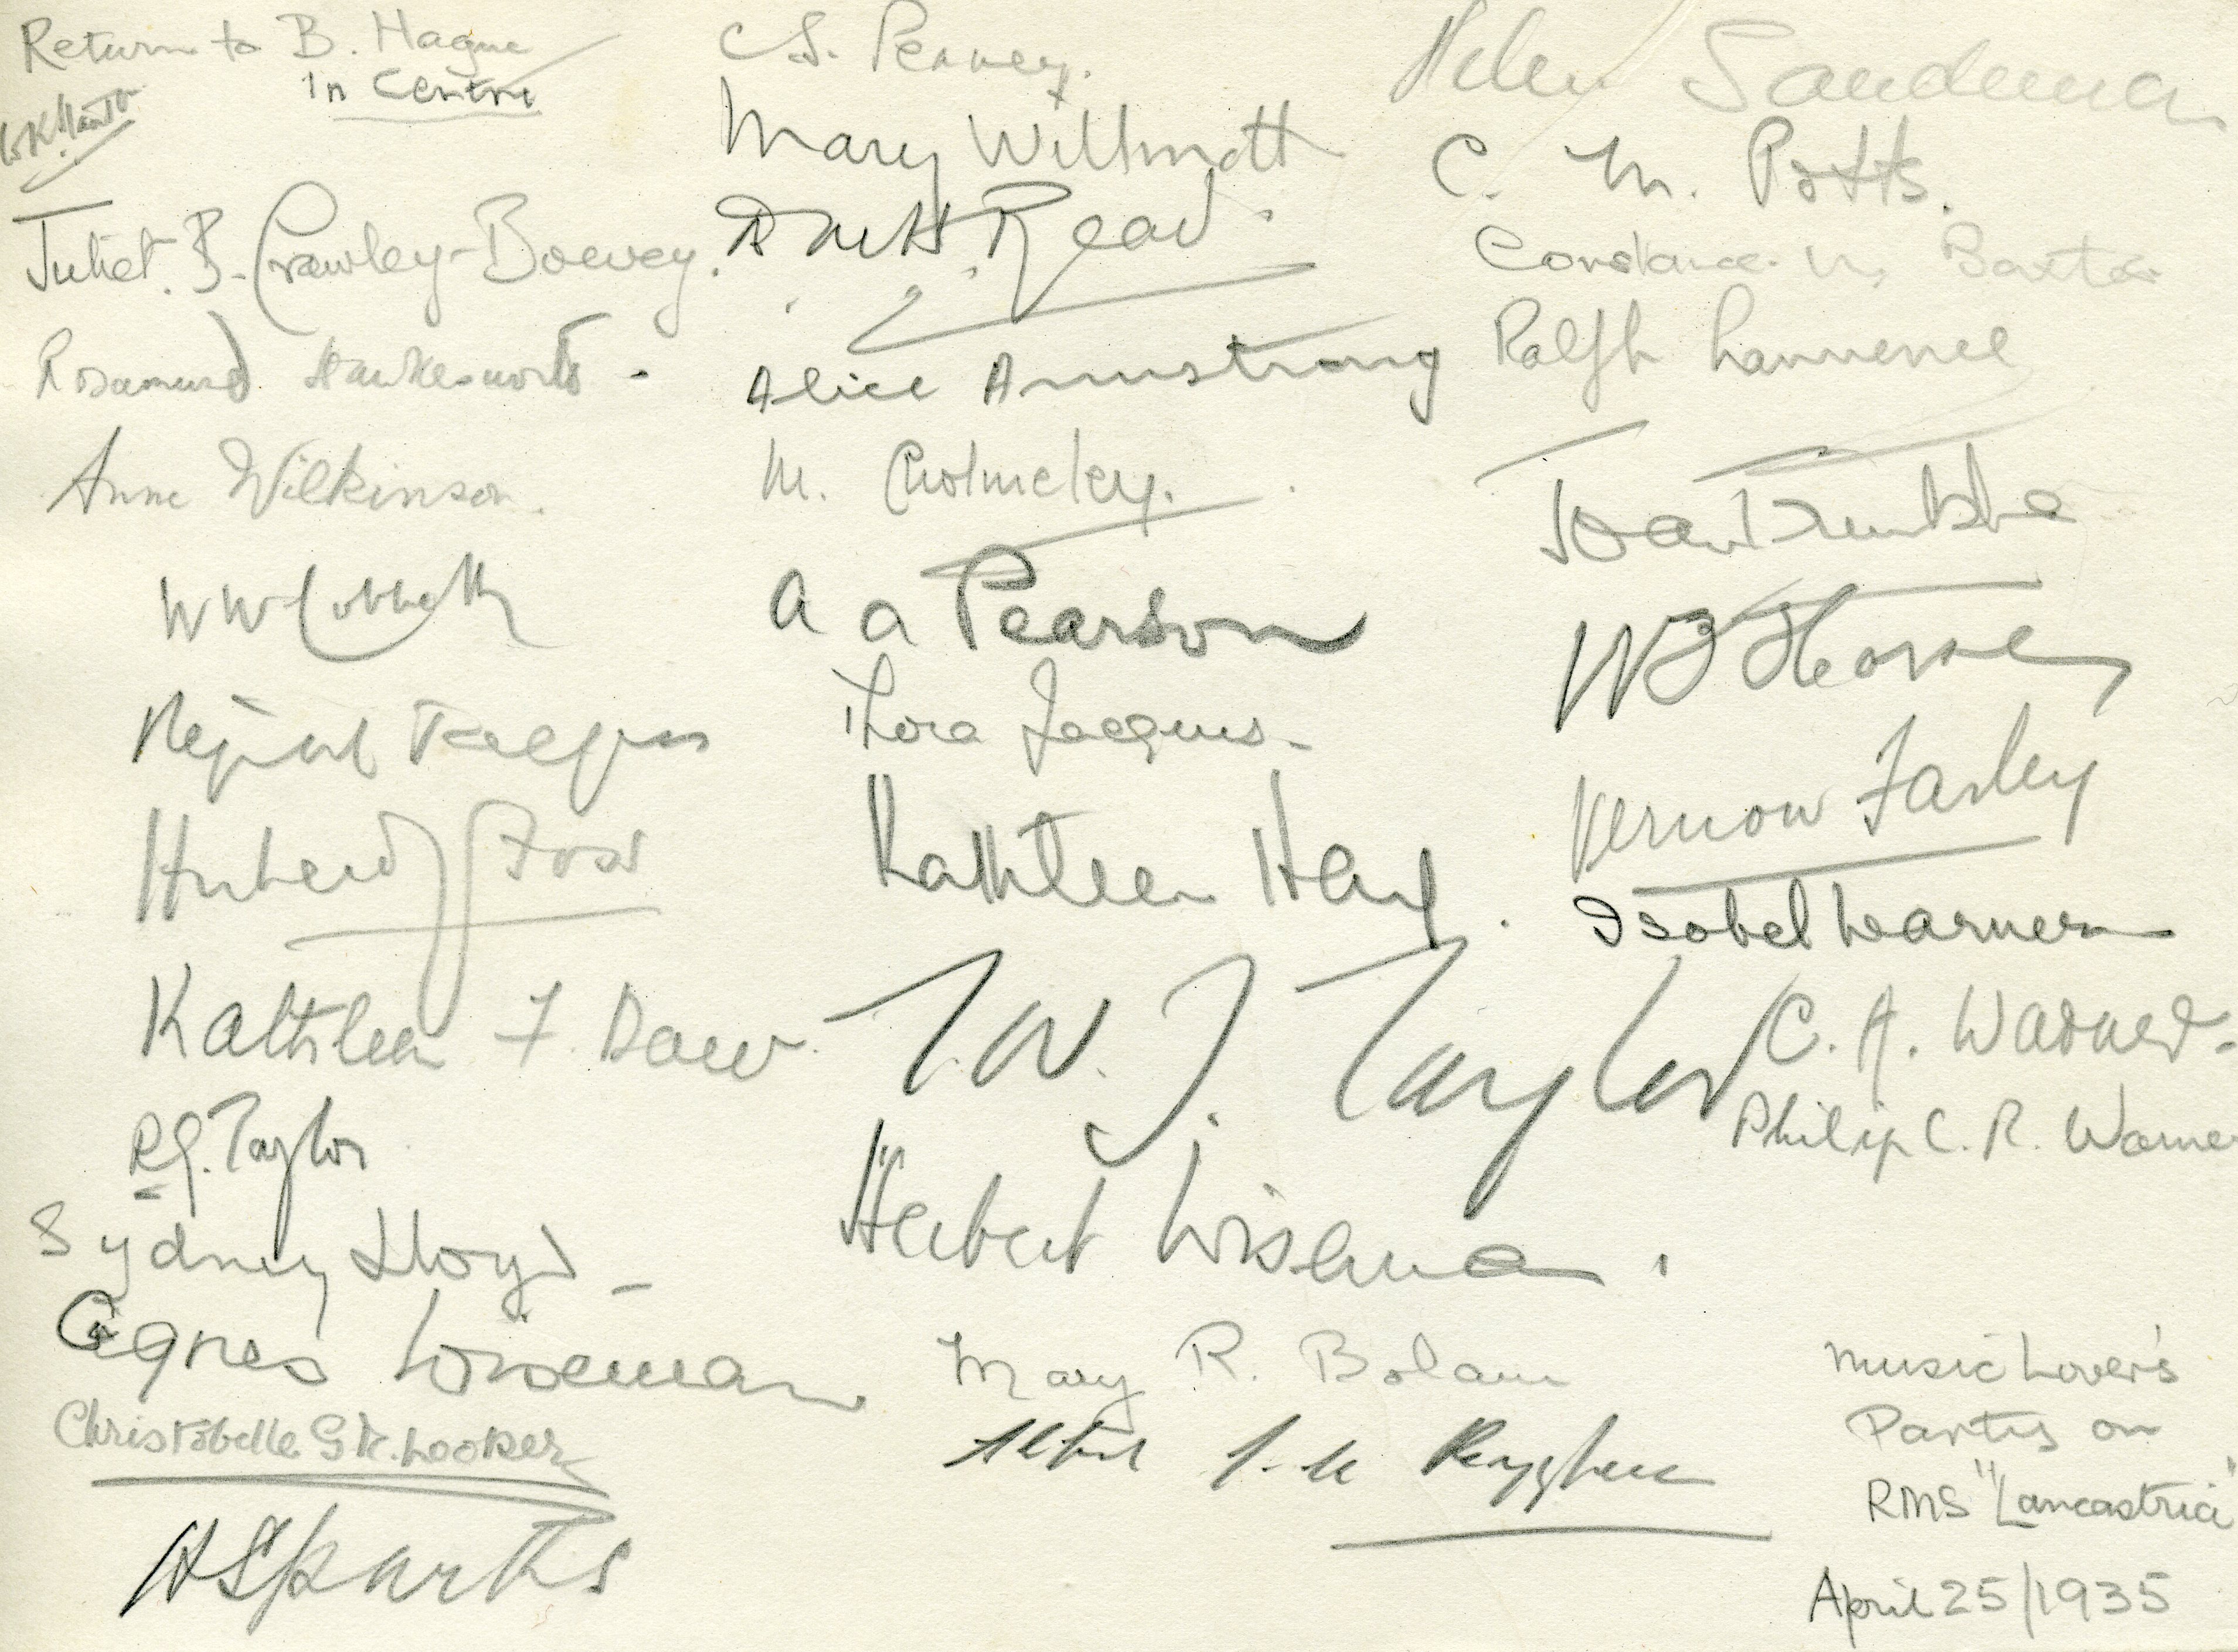 Return to B. Hague
in Centre
Juliet. B. Crawley-Boevey.
Rosamund Hawkesworth -
Anne Wilkinson.
WW Cobbett
Hubert J Foss
Kathleen F. Daw.
R.G. Taylor
Sydney Lloyd -
Agnes Wiseman
Christobelle G K. Looker
H Sparks
C S. Peavey.
Mary Willmott
Read.
Alice Armstrong
M. Cholmeley.
A A Pearson
Thora Jacques -
Kathleen Hay.
T. W. J. Taylor
Herbert Wiseman.
Mary R. Bolam
Helen Sandeman
C. M. Potts.
Constance M. Baxter
Ralph Lawrence
Joan Trimble
W B Thorne
Vernon Farley
Isobel Learner
C. A. Warner -
Philip C. R. Warne
Music Lover's
Party on
RMS "Lancastria"
April 25/1935